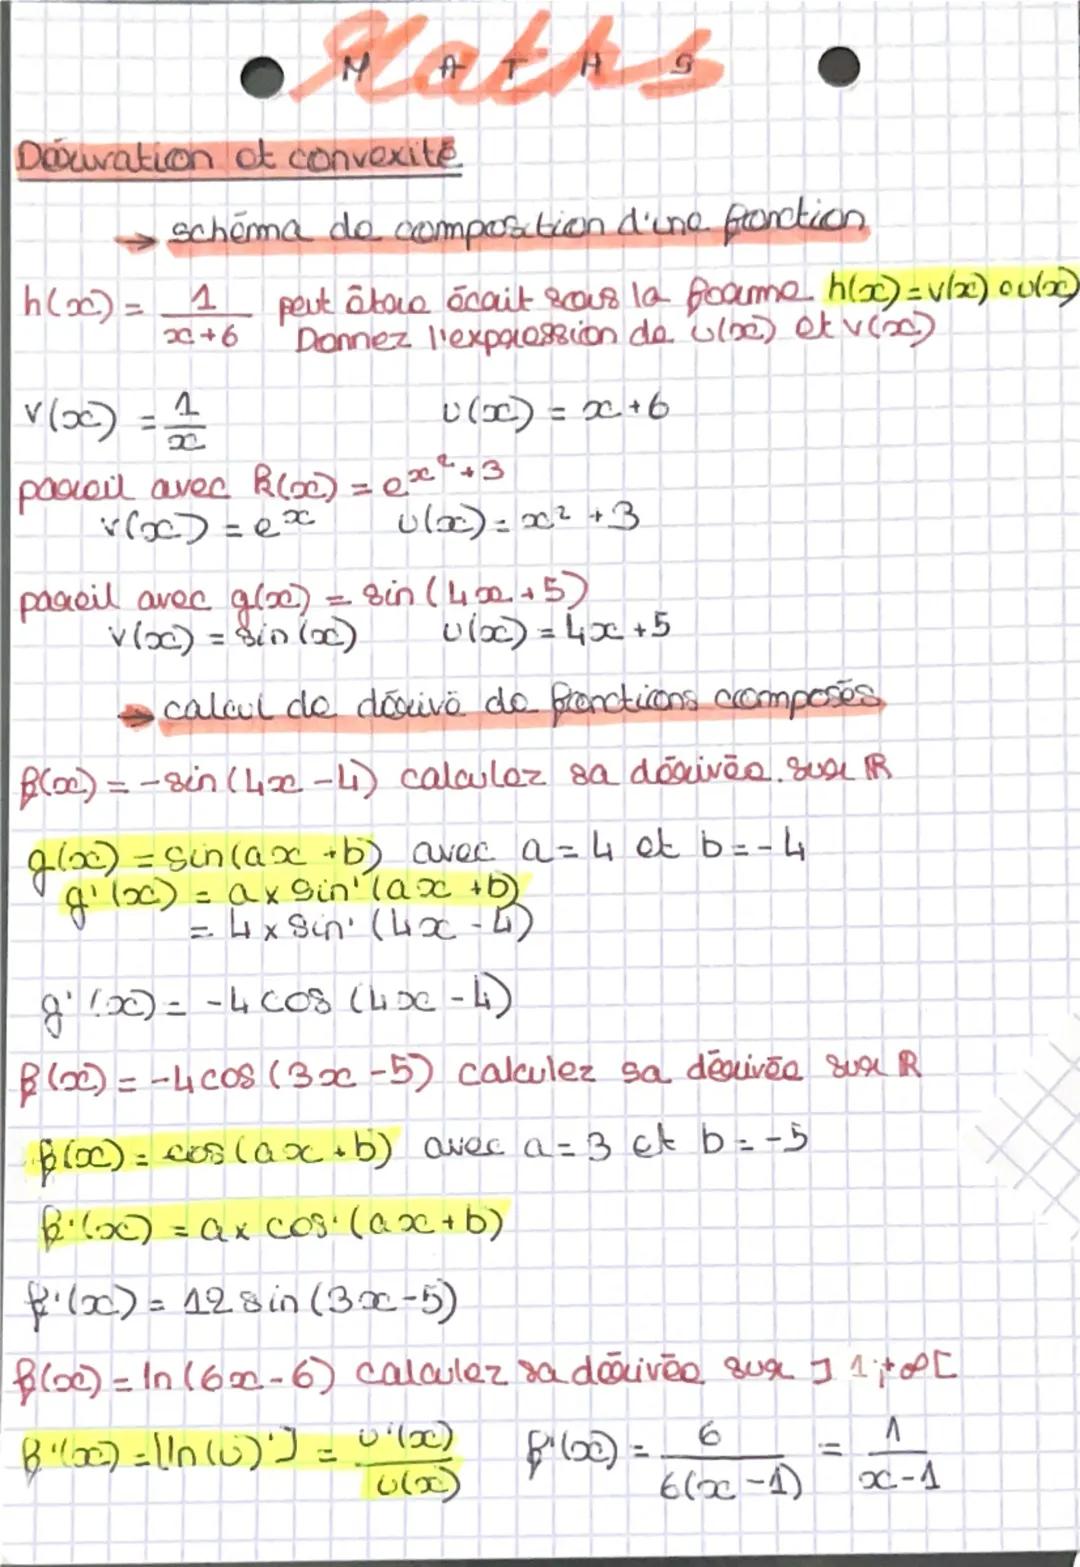 Maths
M A T H S
Dérivation et convexité
→ schéma de composition d'une fonction
h(x) = 1/(x+6) peut être écrit sous la forme h(x) = v(x) o u(x)
Donnez l'expression de u(x) et v(x)
v(x) = 1/x u(x) = x+6
pareil avec k(x) = e^(x²+3)
v(x) = e^x u(x) = x² + 3
pareil avec g(x) = sin (4x+5)
v(x) = sin (x) u(x) = 4x+5
→ calcul de dérivé de fonctions composés
f(x) = -sin (4x-4) calculez sa dérivée sur ℝ
g(x) = sin(ax+b) avec a=4 et b=-4
g'(x) = a x sin' (ax+b)
= 4 x sin' (4x-4)
g'(x) = -4 cos (4x-4)
f(x) = -4cos (3x-5) calculez sa dérivée sur ℝ
f(x) = cos (ax+b) avec a=3 et b=-5
f'(x) = a x cos' (ax+b)
f'(x) = 12 sin (3x-5)
f(x) = ln (6x-6) calculez sa dérivée sur ]1;+∞[
f'(x) = [ln(u)'] = u'(x)/u(x) f'(x) = 6/(6(x-1)) = 1/(x-1)